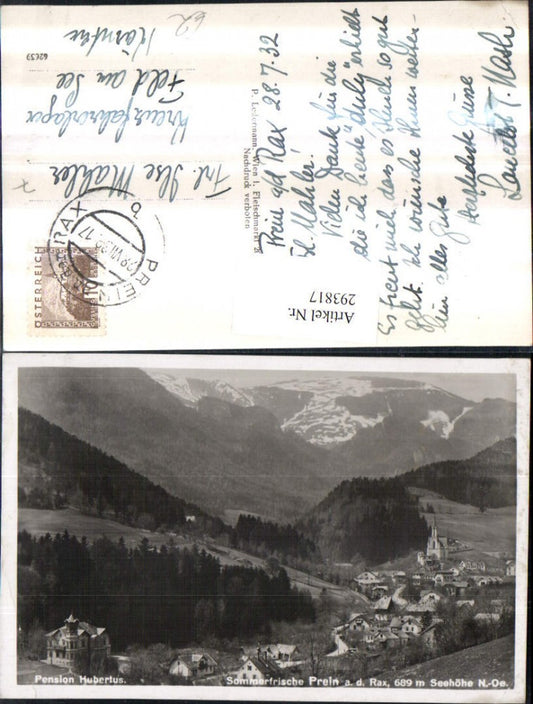 Prein a/d Rax 28.7.32
Frl. Mahler.
Vielen Dank für die
die ich heute erhielt
Es freut mich, dass es Ihnen so gut
geht. Ich wünsche Ihnen weiter-
hin alles Gute
Herzlichste Grüsse
P. Ledermann, Wien I. Fleischmarkt
Nachdruck verboten
Frl. Ilse Mahler
Feld am See
Kärnten
62
62639
PREIN
RAX
ÖSTERREICH
Artikel Nr.
293817
Pension Hubertus.
Sommerfrische Prein a. d. Rax, 689 m Seehöhe N.-Oe.